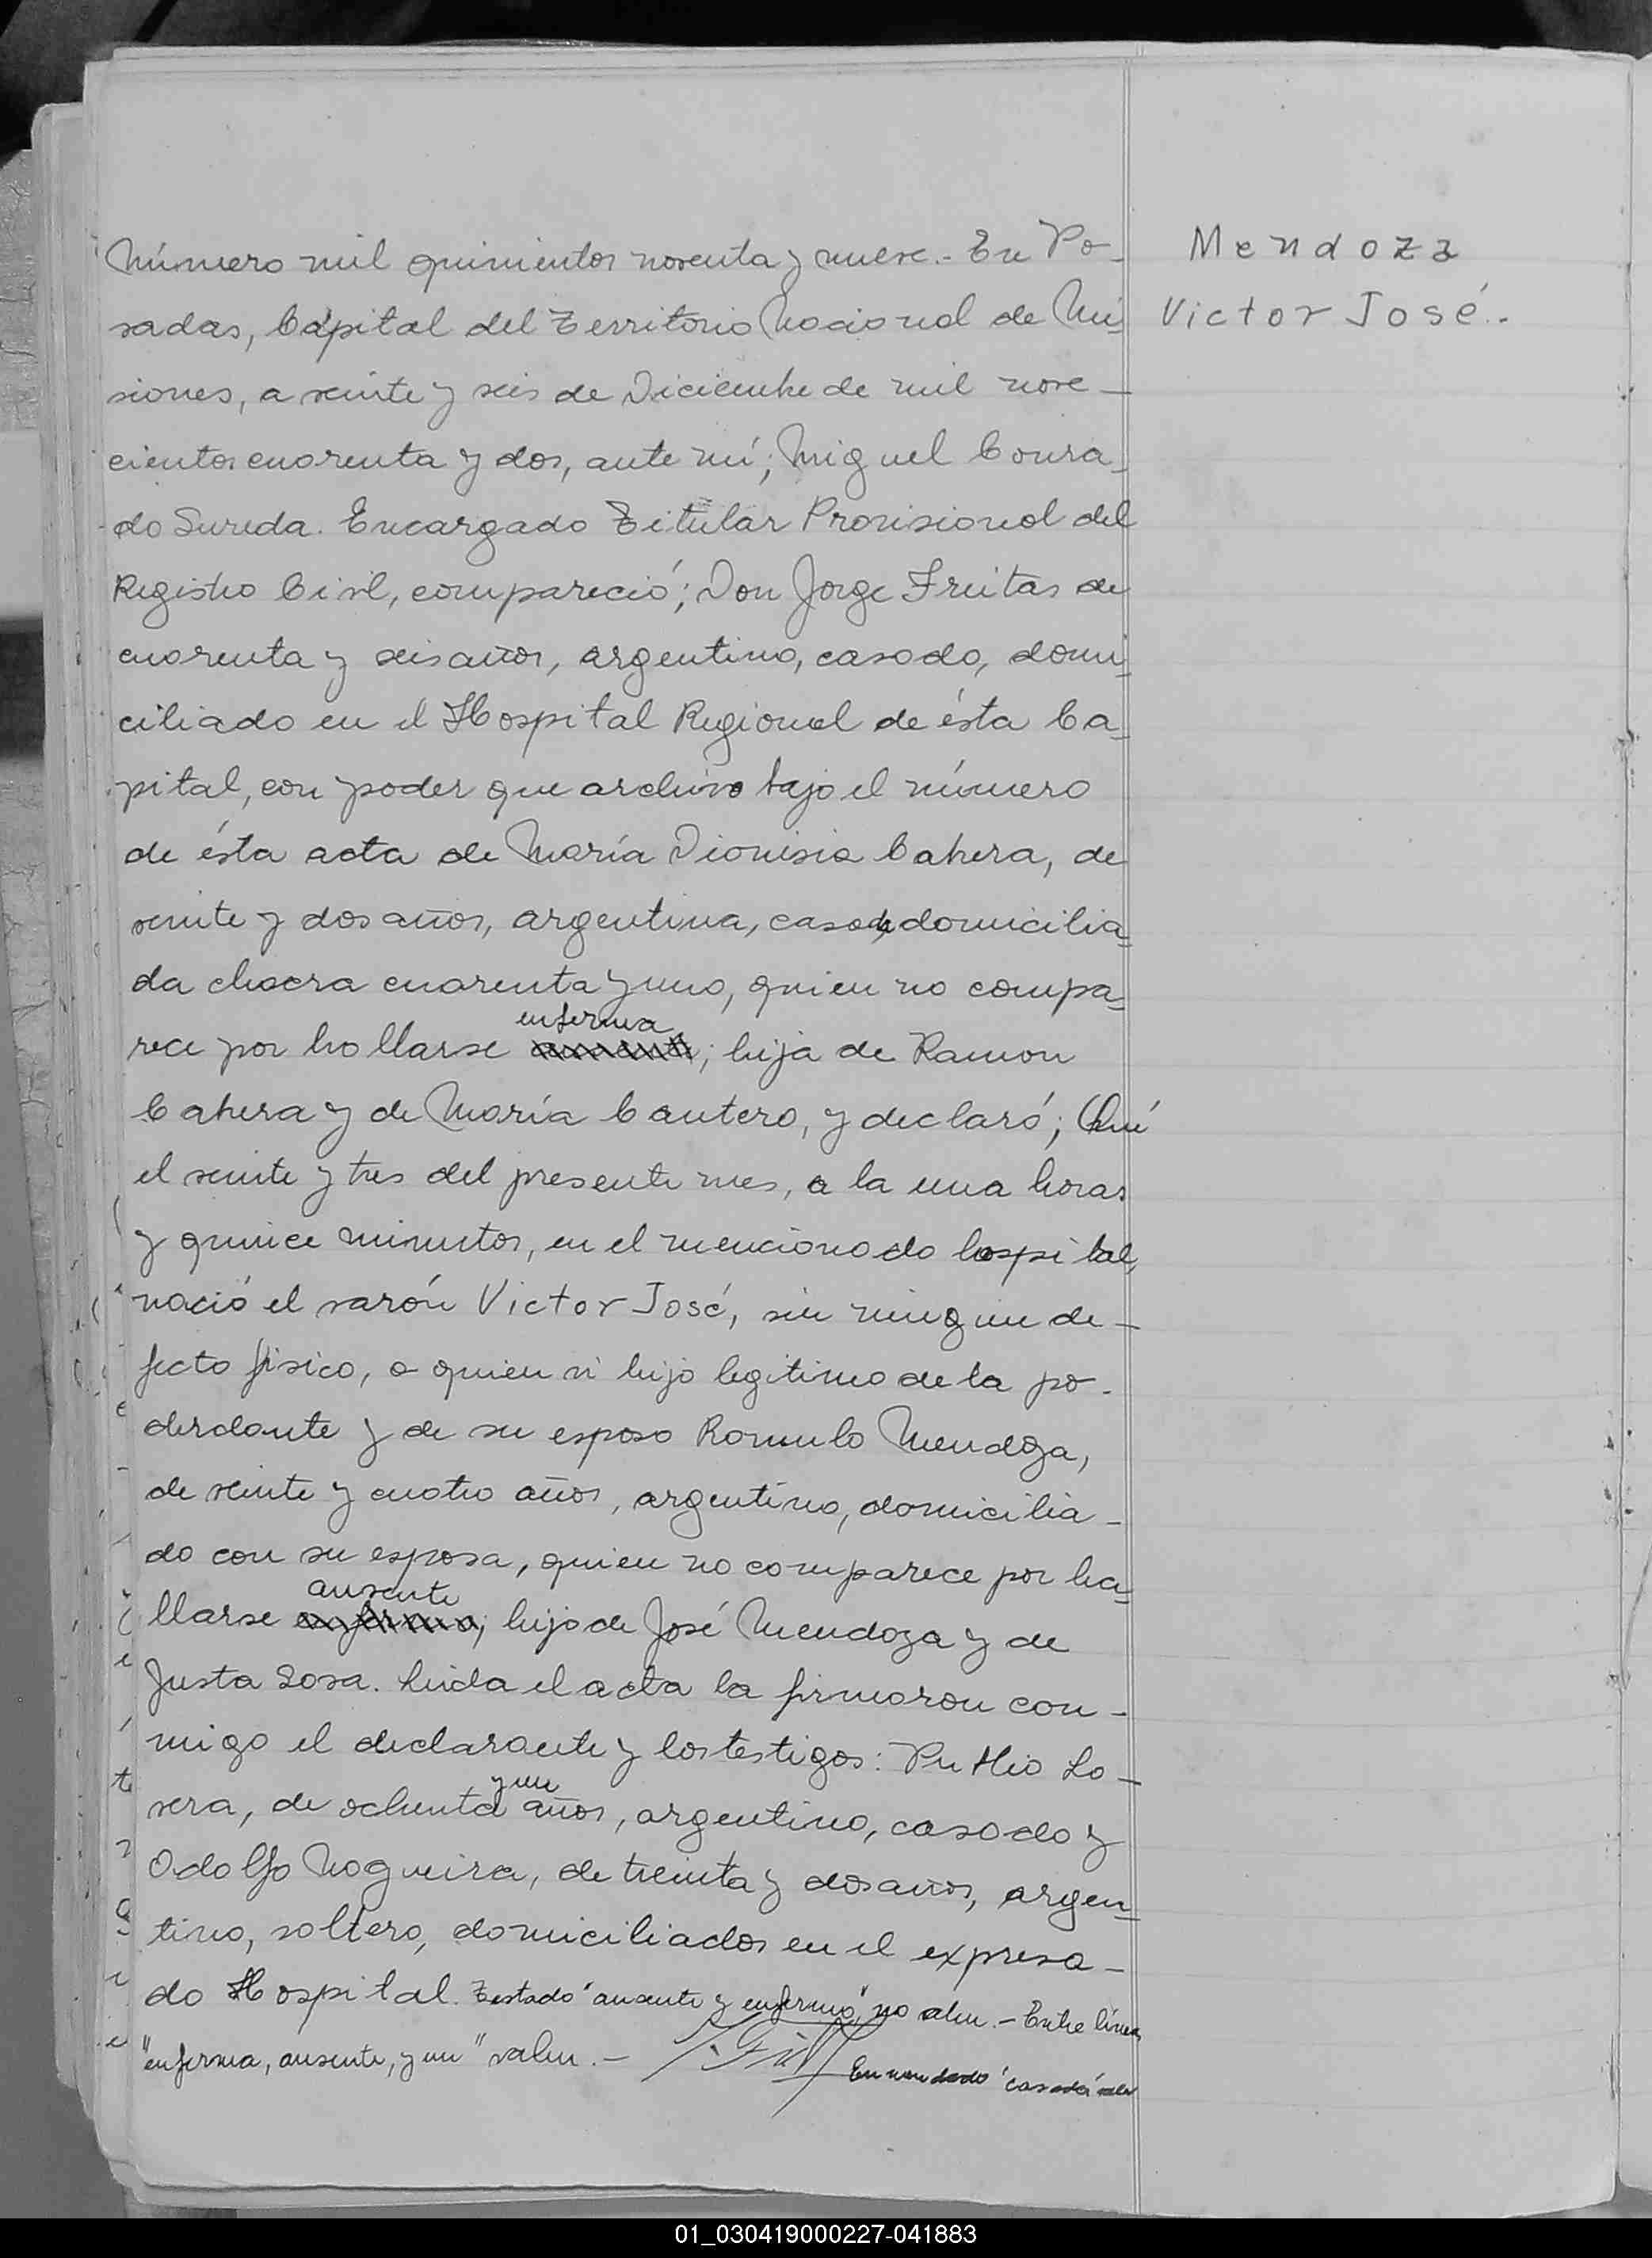 Mendoza
Victor José.-
Número mil quinientos noventa y nueve.- En Po-
sadas, Capital del Territorio Nacional de Mi-
siones, a veinte y seis de Diciembre de mil nove-
cientos cuarenta y dos, ante mí; Miguel Conra-
do Sureda. Encargado Titular Provisional del
Registro Civil, compareció; Don Jorge Freitas de
cuarenta y seis años, argentino, casado, domi-
ciliado en el Hospital Regional de ésta Ca-
pital, con poder que archivo bajo el número
de ésta acta de María Dionisia Cabrera, de
veinte y dos años, argentina, casada, domicilia-
da chacra cuarenta y uno, quien no compa-
rece por hallarse enferma; hija de Ramon
Cabrera y de María Cantero, y declaró; Qué
el veinte y tres del presente mes, a la una horas
y quince minutos, en el mencionado hospital,
nació el varón Victor José, sin ningun de-
fecto físico, a quien vi hijo legitimo de la po-
derdante y de su esposo Romulo Mendoza,
de veinte y cuatro años, argentino, domicilia-
do con su esposa, quien no comparece por ha-
llarse ausente; hijo de José Mendoza y de
Justa Sosa. Leida el acta la firmaron con-
migo el declarante y los testigos: Publio Lo-
vera, de ochenta y un años, argentino, casado y
Odolfo Nogueira, de treinta y dos años, argen-
tino, soltero, domiciliados en el expresa-
do Hospital. Testado "ausente y enfermo" no valen.- Entre lineas
"enferma, ausente, y un" valen.-
Enmendado "casada" vale
01_030419000227-041883